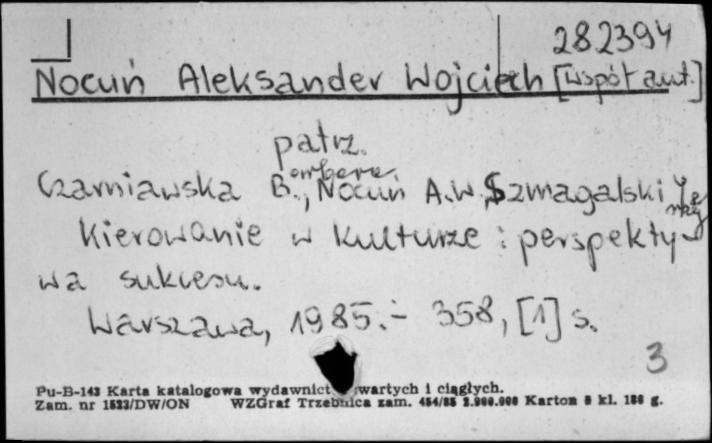 282394
Nocuń Aleksander Wojciech [współaut.]
patrz.
Czarniawska B., Nocuń A.W., Szmagalski Jerzy
Kierowanie w kulturze : perspekty-
wa sukcesu.
Warszawa, 1985.- 358, [1] s.
3
Pu-B-143 Karta katalogowa wydawnict wartych i ciągłych.
Zam. nr 1533/DW/ON WZGraf Trzebnica zam. 454/85 2.900.000 Karton 5 kl. 180 g.